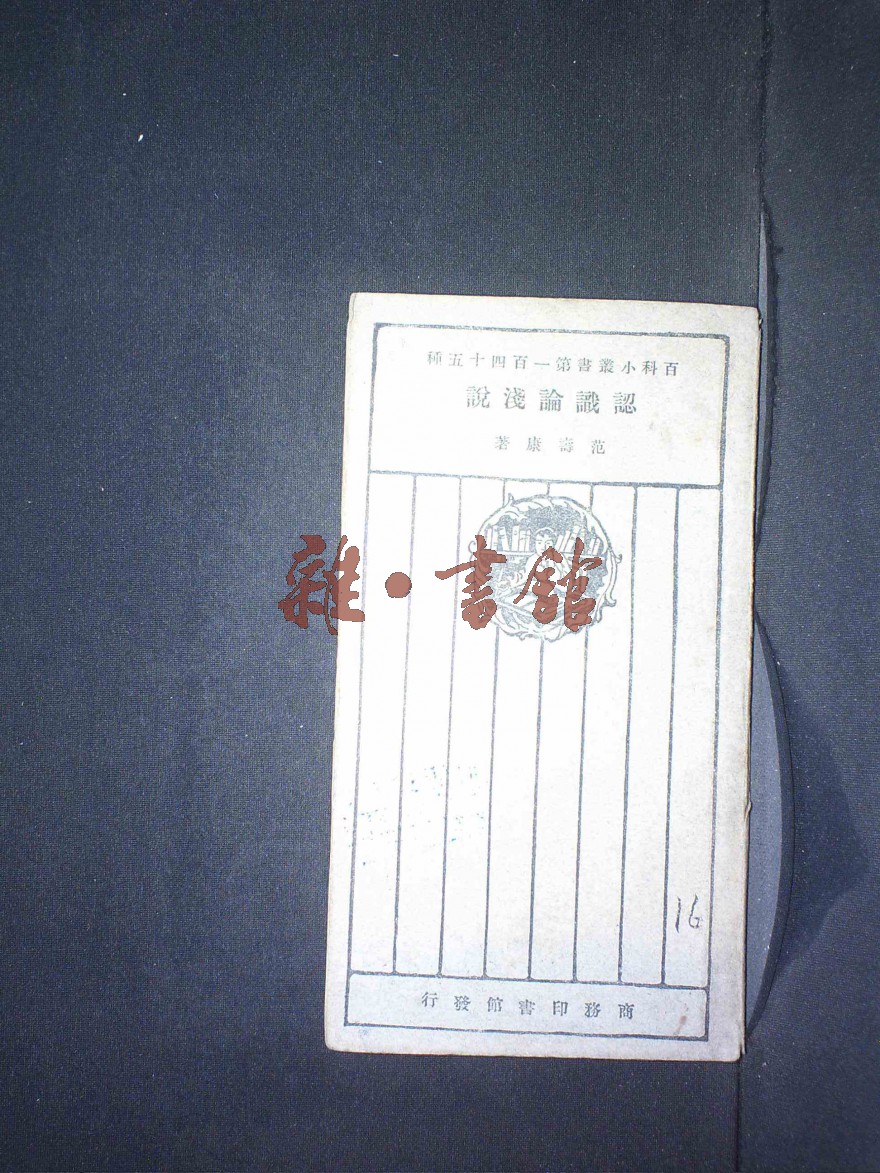 百科小叢書第一百四十五種
認識論淺說
范壽康著
雜·書館
16
商務印書館發行